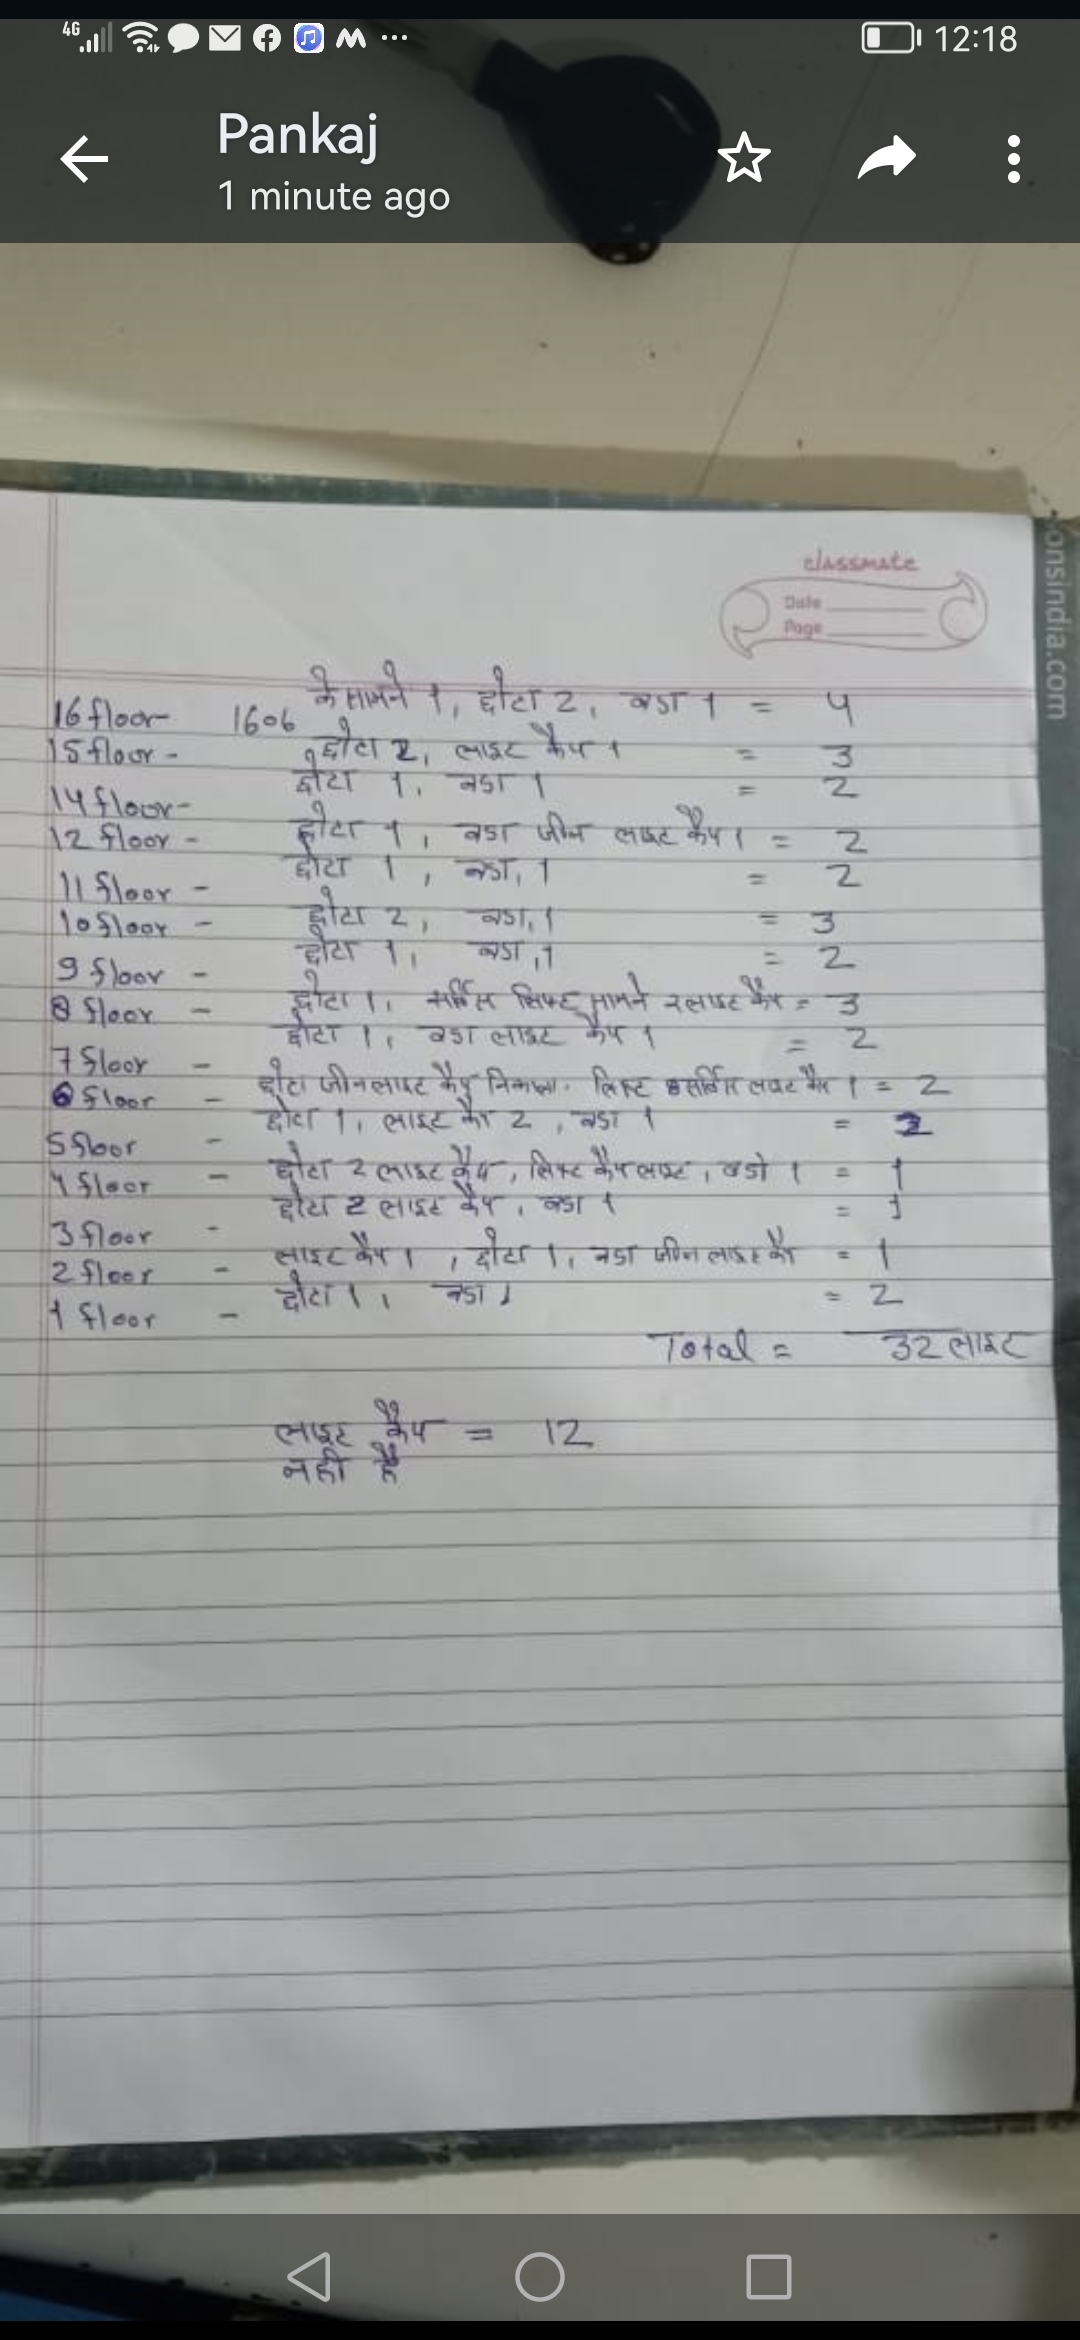 4G 12:18
Pankaj
1 minute ago
onsindia.com
classmate
Date
Page
16 floor- 1606 के सामने 1, छोटा 2, बडा 1 = 4
15 floor - छोटा 2, लाइट कैप 1 = 3
14 floor- छोटा 1, बडा 1 = 2
12 floor - छोटा 1, बडा जीन लाइट कैप 1 = 2
11 floor - छोटा 1, बडा, 1 = 2
10 floor - छोटा 2, बडा, 1 = 3
9 floor - छोटा 1, बडा, 1 = 2
8 floor - छोटा 1, सर्विस लिफ्ट सामने 2 लाइट कैप = 3
7 floor - छोटा 1, बडा लाइट कैप 1 = 2
6 floor - छोटा जीन लाइट कैप निकला. लिफ्ट सर्विस लाइट कैप 1 = 2
5 floor - छोटा 1, लाइट कैप 2, बडा 1 = 2
4 floor - छोटा 2 लाइट कैप, लिफ्ट कैप लाइट, बडो 1 = 1
3 floor - छोटा 2 लाइट कैप, बडा 1 = 1
2 floor - लाइट कैप 1, छोटा 1, बडा जीन लाइट कैप = 1
1 floor - छोटा 1, बडा 1 = 2
Total = 32 लाइट
लाइट कैप = 12
नही है